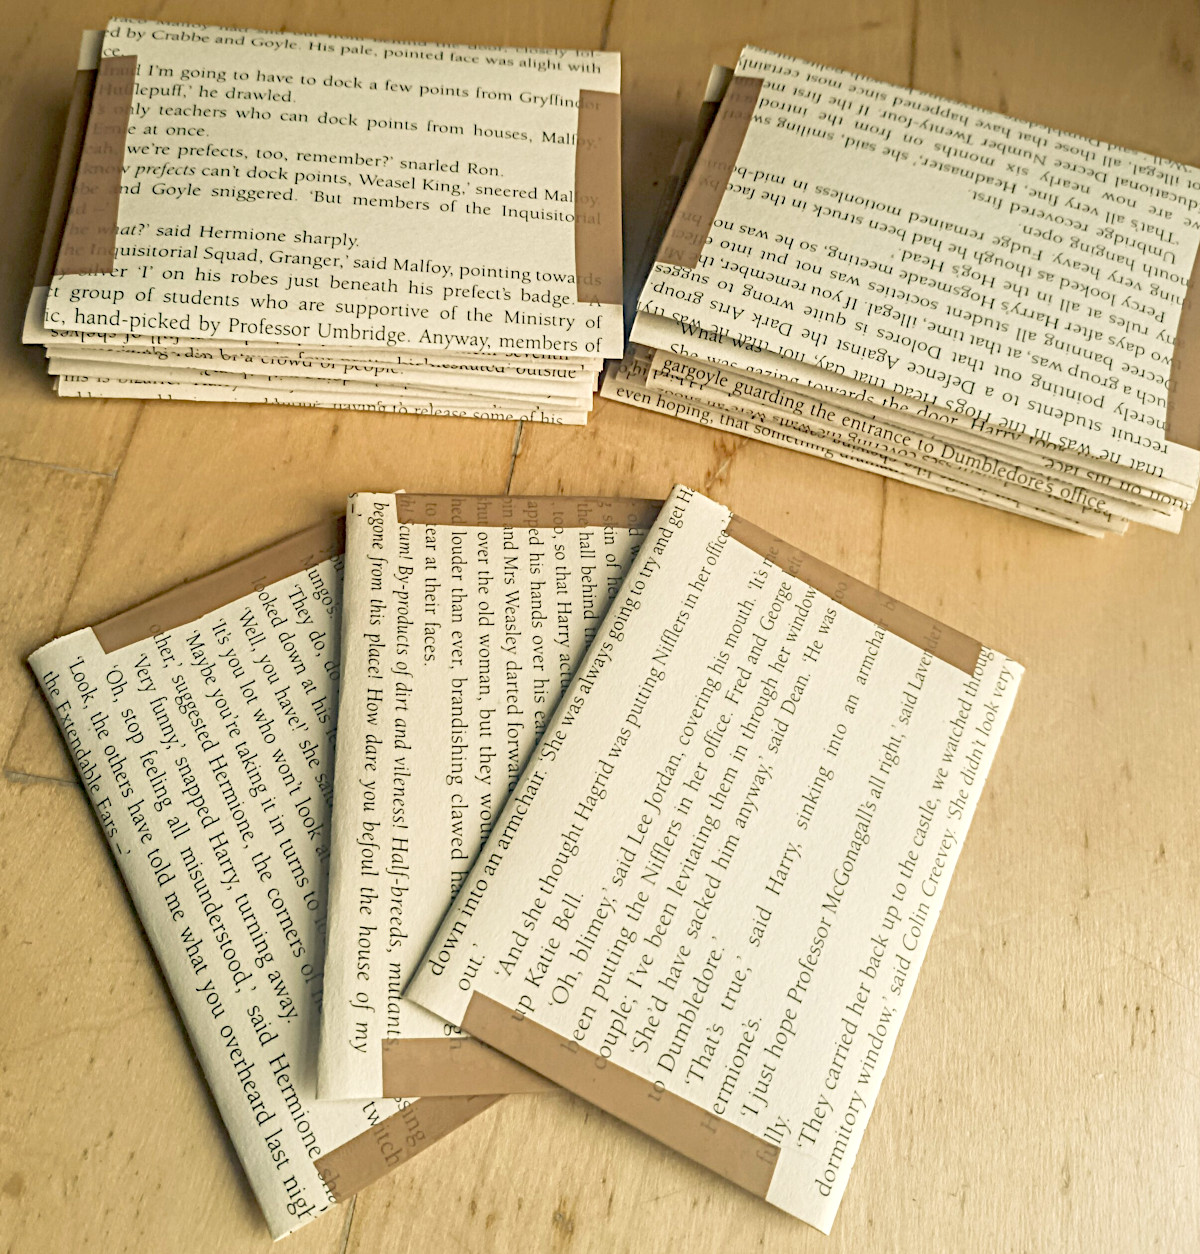 ed by Crabbe and Goyle. His pale, pointed face was alight with
ce.
I'm going to have to dock a few points from Gryffindor
Hufflepuff,' he drawled.
only teachers who can dock points from houses, Malfoy,'
Ernie at once.
we're prefects, too, remember?' snarled Ron.
know prefects can't dock points, Weasel King,' sneered Malfoy.
and Goyle sniggered. 'But members of the Inquisitorial
what?' said Hermione sharply.
Inquisitorial Squad, Granger,' said Malfoy, pointing towards
silver 'I' on his robes just beneath his prefect's badge. 'A
ct group of students who are supportive of the Ministry of
ic, hand-picked by Professor Umbridge. Anyway, members of
of a crowd of people.
outside
this is bizarre.
trying to release some of his
those that have happened since
illegal, all
Educational Decree Number Twenty-four. If the first me
we are now nearly six months on from the introd
'That's all very fine, Headmaster,' she said, smiling sweet
Umbridge recovered first.
mouth hanging open.
ning very heavy. Fudge remained motionless in mid-bou
Percy looked as though he had been struck in the face by
ny rules at all in the Hog's Head.'
wo days after Harry's Hogsmeade meeting, so he was not br
Decree banning all student societies was not put into effect
such a group was, at that time, illegal. If you remember, the
merely pointing out that Dolores is quite wrong to sugges
recruit students to a Defence Against the Dark Arts group.
that he was in the Hog's Head that day, not that he was try
'What was
She was gazing towards the door. Harry
gargoyle guarding the entrance to Dumbledore's office
even hoping, that something
Mungo's.
'They do, d
looked down at his
'Well, you have!' she said
'It's you lot who won't look at
'Maybe you're taking it in turns to
other,' suggested Hermione, the corners of
'Very funny,' snapped Harry, turning away.
'Oh, stop feeling all misunderstood,' said Hermione
'Look, the others have told me what you overheard last nigh
the Extendable Ears –'
twitch
skin of her
the hall behind
too, so that Harry actu
apped his hands over his ea
in and Mrs Weasley darted forward
hut over the old woman, but they would
hed louder than ever, brandishing clawed ha
to tear at their faces.
Scum! By-products of dirt and vileness! Half-breeds, mutants,
begone from this place! How dare you befoul the house of my
down into an armchair. 'She was always going to try and get H
out.'
'And she thought Hagrid was putting Nifflers in her office,'
up Katie Bell.
'Oh, blimey,' said Lee Jordan, covering his mouth. 'It's me
been putting the Nifflers in her office. Fred and George left
couple; I've been levitating them in through her window
'She'd have sacked him anyway,' said Dean. 'He was too
to Dumbledore.'
'That's true,' said Harry, sinking into an armchair b
Hermione's.
'I just hope Professor McGonagall's all right,' said Lavender
fully.
'They carried her back up to the castle, we watched through
dormitory window,' said Colin Creevey. 'She didn't look very